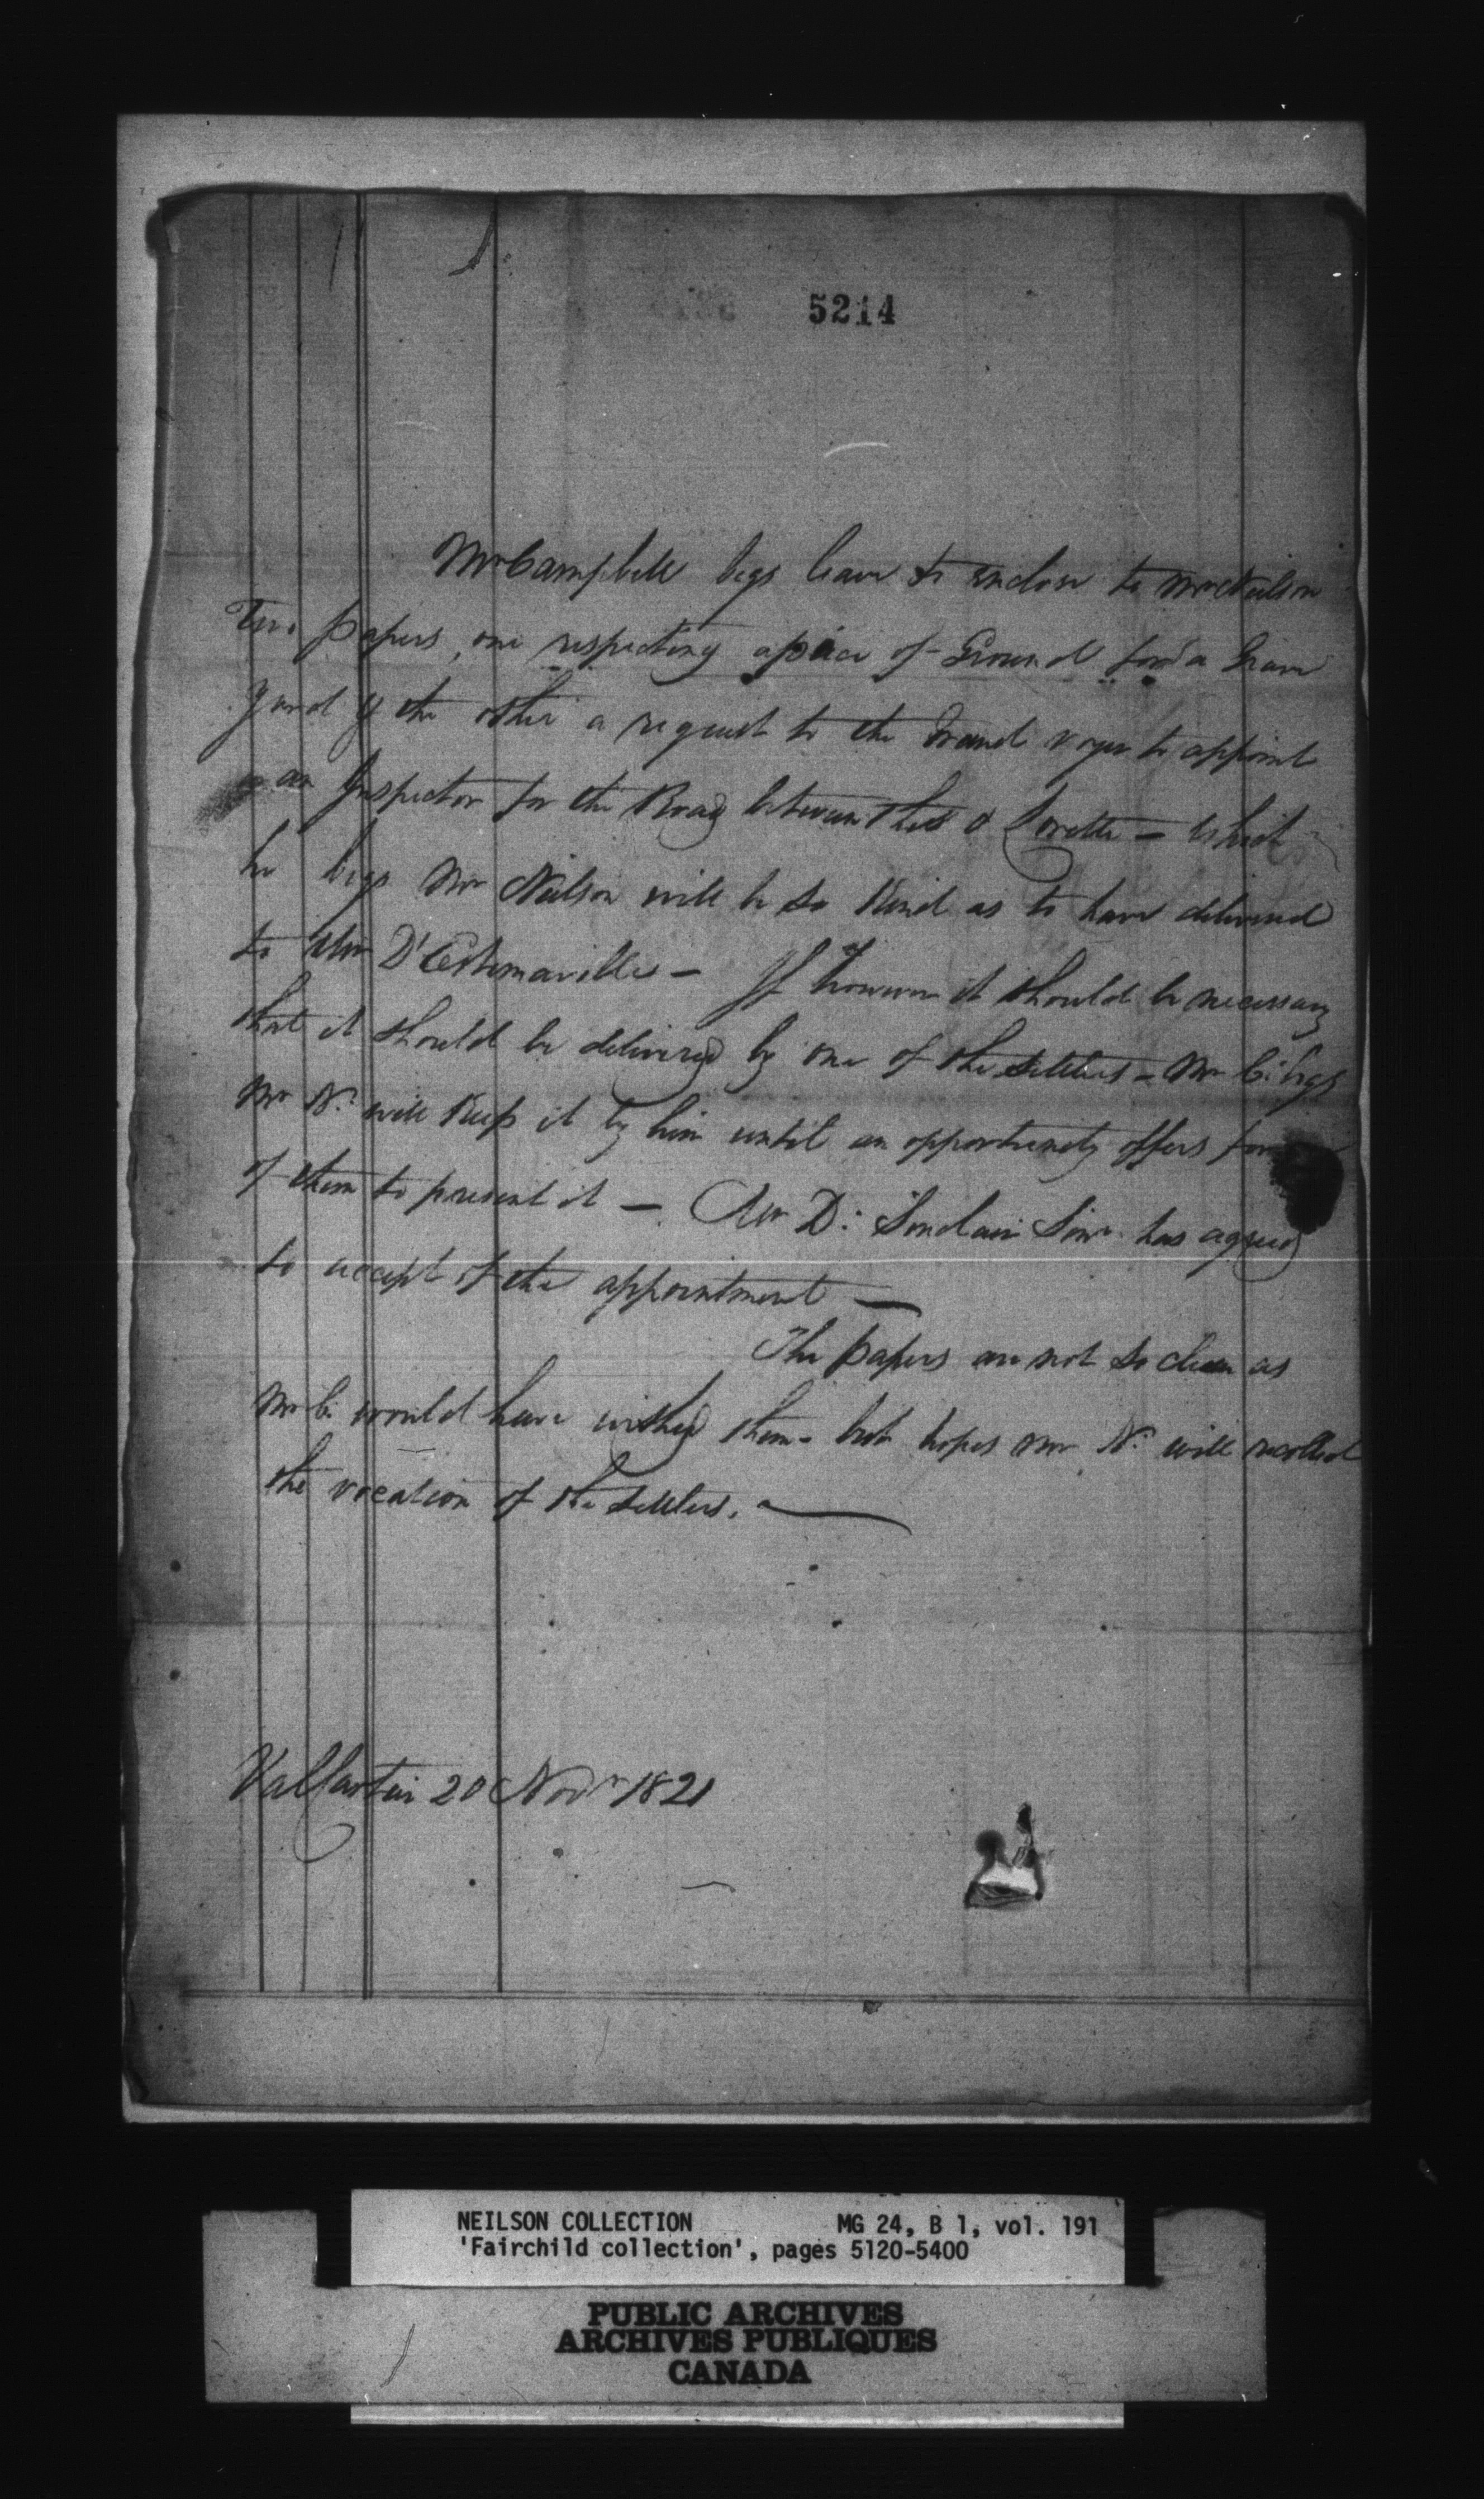 5214
Mr Campbell begs leave to enclose to Mr Neilson
Two papers, one respecting a piece of Ground for a Grave
Yard & the other a request to the Grand voyer to appoint
an Inspector for the Road between this & Lorette – which
he begs Mr Neilson will be so kind as to have delivered
to Mr D'Estimauville – If however it should be necessary
that it should be delivered by one of the settlers – Mr C. begs
Mr N. will keep it by him until an opportunity offers for
of them to present it – Mr D. Sinclair Senr. has agreed
to accept of the appointment —
The papers are not so clean as
Mr C. would have wished them – but hopes Mr N. will recollect
the vocation of the settlers. —
Valcartier 20 Novr 1821
NEILSON COLLECTION MG 24, B 1, vol. 191
'Fairchild collection', pages 5120-5400
PUBLIC ARCHIVES
ARCHIVES PUBLIQUES
CANADA